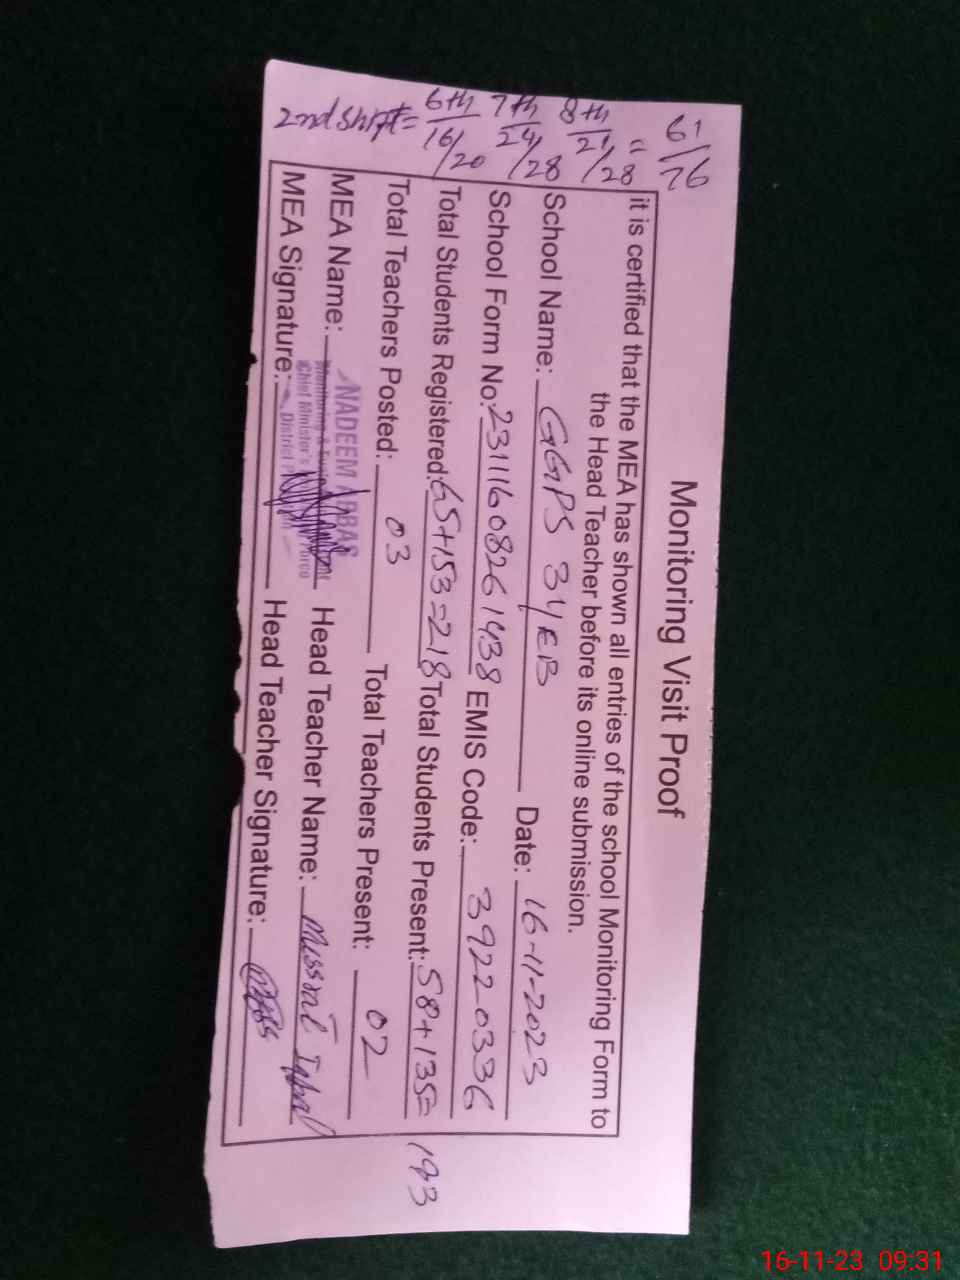 Monitoring Visit Proof
it is certified that the MEA has shown all entries of the school Monitoring Form to
the Head Teacher before its online submission.
School Name: GGPS 34 EB Date: 16-11-2023
School Form No: 23111608261438 EMIS Code: 39220336
Total Students Registered: 65+153=218 Total Students Present: 58+135= 193
Total Teachers Posted: 03 Total Teachers Present: 02
MEA Name: NADEEM ABBAS Head Teacher Name: Mussrat Iqbal
Chief Minister's Force
District
MEA Signature: Head Teacher Signature:
2nd Shift = 6th 7th 8th
16/20 24/28 21/28 = 61/76
16-11-23 09:31